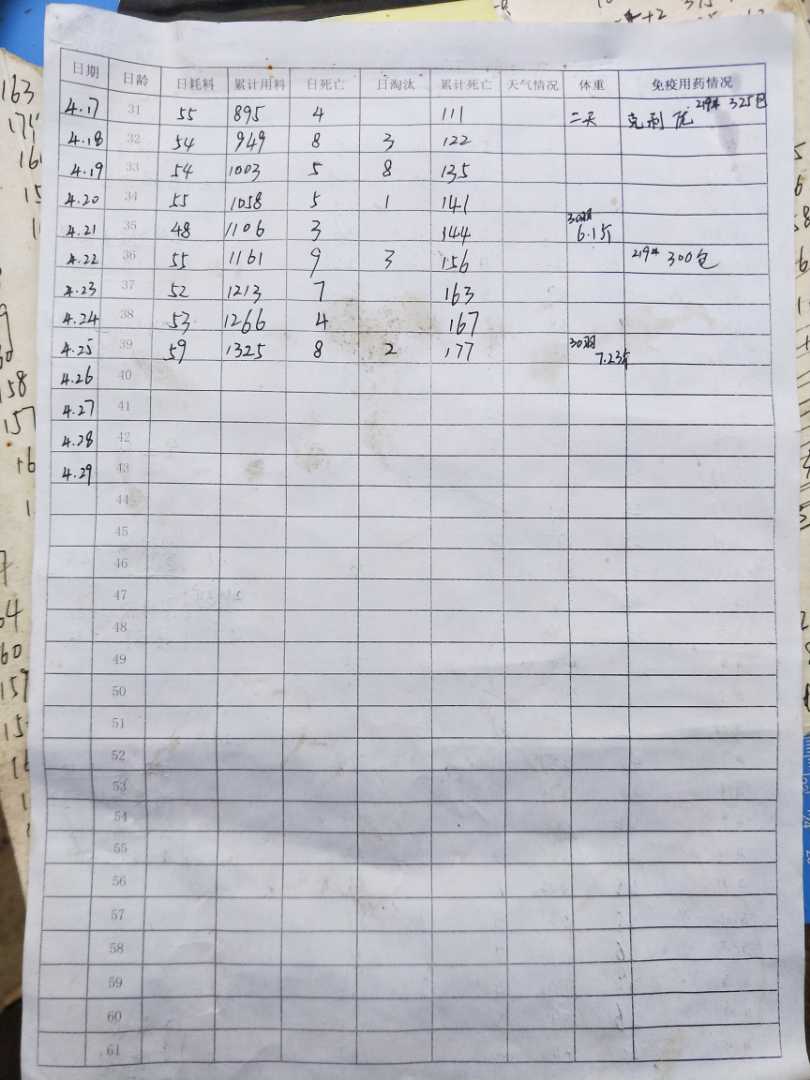 日期 日龄 日耗料 累计用料 日死亡 日淘汰 累计死亡 天气情况 体重 免疫用药情况
4.17 31 55 895 4 111 二天 克利优 219# 325包
4.18 32 54 949 8 3 122
4.19 33 54 1003 5 8 135
4.20 34 55 1058 5 1 141
4.21 35 48 1106 3 144 30羽 6.1斤
4.22 36 55 1161 9 3 156 219# 300包
4.23 37 52 1213 7 163
4.24 38 53 1266 4 167
4.25 39 59 1325 8 2 177 30羽 7.23斤
4.26 40
4.27 41
4.28 42
4.29 43
44
45
46
47
48
49
50
51
52
53
54
55
56
57
58
59
60
61